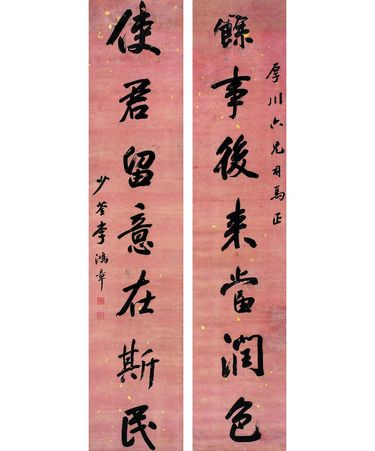 厚川六兄司馬正
餘事後来當潤色
使君留意在斯民
少荃李鴻章